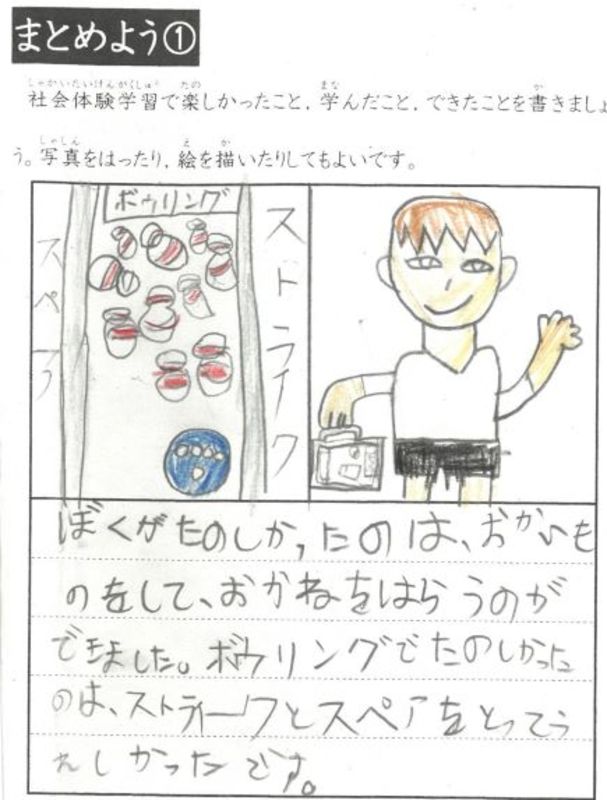 まとめよう①
社会体験学習で楽しかったこと，学んだこと，できたことを書きましょ
う。写真をはったり，絵を描いたりしてもよいです。
ボウリング
スペア
ストライク
ぼくがたのしかったのは、おかいも
のをして、おかねをはらうのが
できました。ボウリングでたのしかった
のは、ストライクとスペアをとってう
れしかったです。